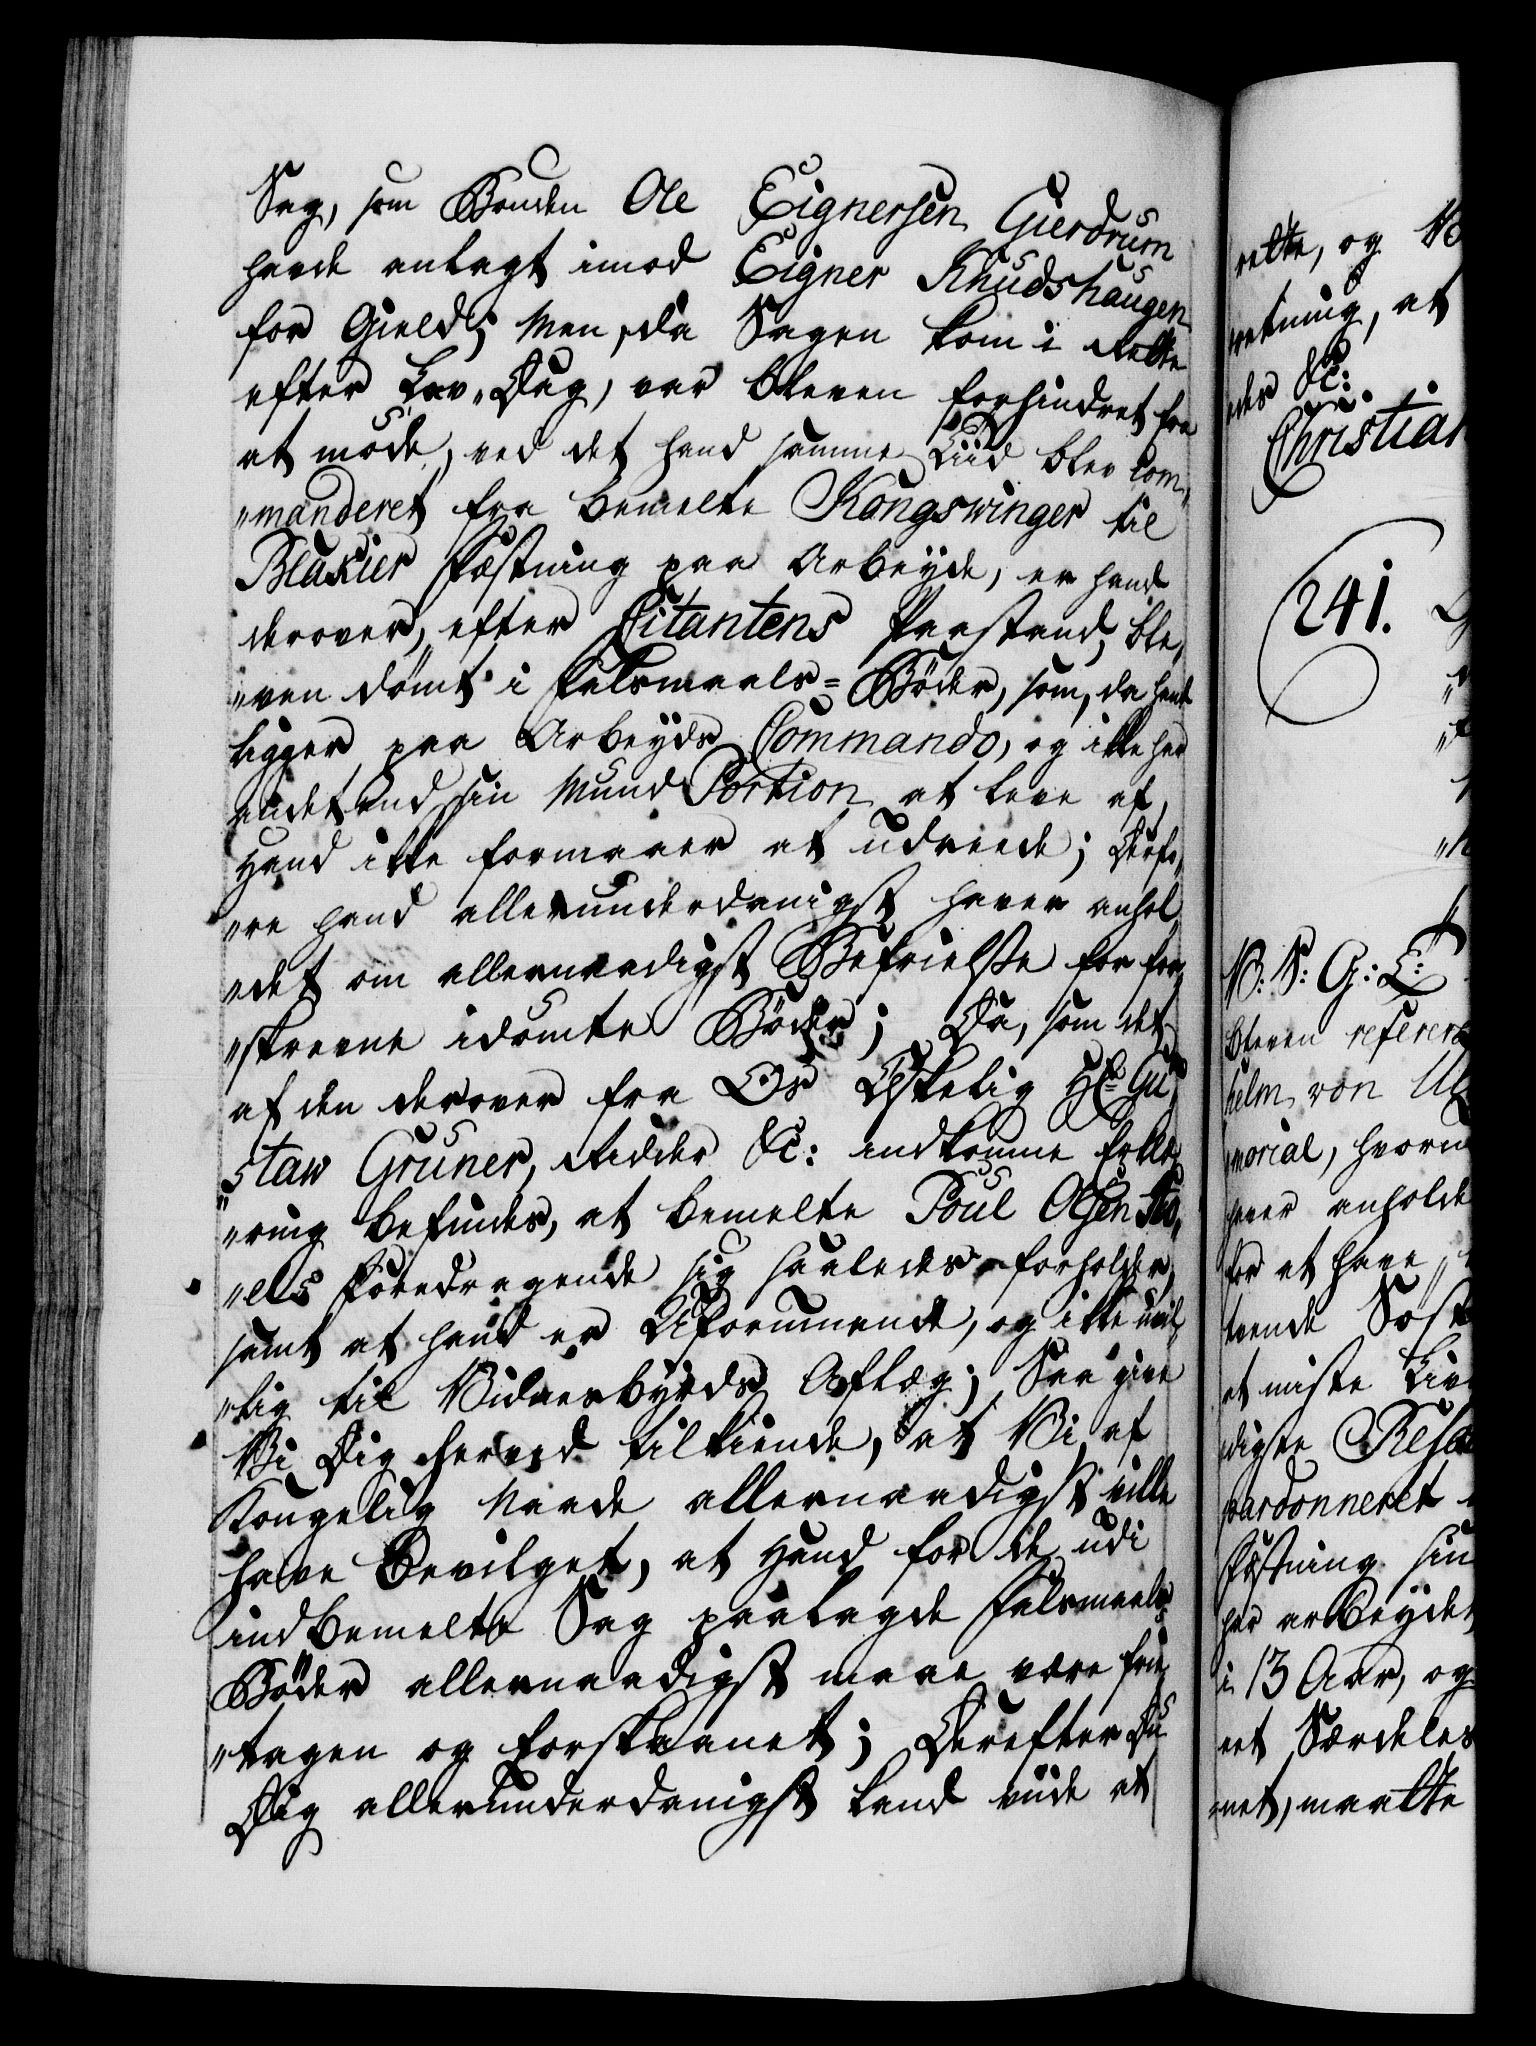 Sag, som Bonden Ole Eignersen Gierdrum
havde anlagt imod Eigner Knudshaugen
for Gield; Men, da Sagen kom i Rette
efter Lav-Dag, var bleven forhindret fra
at møde, ved det hand samme Tiid blev Com„
„manderet fra bemelte Kongswinger til
Blakier Fæstning paa Arbeyde, er hand
derover, efter Citantens Paastand, ble„
„ven dømt i Falsmaals-Bøder, som, da hand
ligger paa Arbeyds Commando, og ikke har
andet end sin Mund Portion at leve af,
Hand ikke formaaer at udreede; Derfo„
„re hand allerunderdanigst haver anhol„
„det om allernaadigst Befrielse for for„
„skrevne idømte Bøder; Da, som det
af den derover fra Os Elskelig Hr. Gu„
„staw Grüner, Ridder &c: indkomne Erklæ„
„ring befindes, at bemelte Poul Olsen
„els Foredragende sig saaledes forholder,
samt at hand er Uformuende, og ikke uvil„
„lig til Vidnesbyrds Aflæg; Saa give
Vi Dig herved tilkiende, at Vi af
Kongelig Naade allernaadigst ville
have Bevilget, at Hand for de udi
indbemelte Sag paalagde Falsmaals-
Bøder allernaadigst maae være frie„
„tagen og forskaanet; Derefter Du
Dig allerunderdanigst kand viide at
rette, og
retning, at
des &c:
Christian
241.
V: S: G: T:
bleven referer
helm von
morial, hvorn
haver anholde
for at have
teende Søst
at miste Liv
digste Reso
pardonneret
Fæstning sin
har arbeydet
i 13 Aar, og
et Særdeles
net, maatte